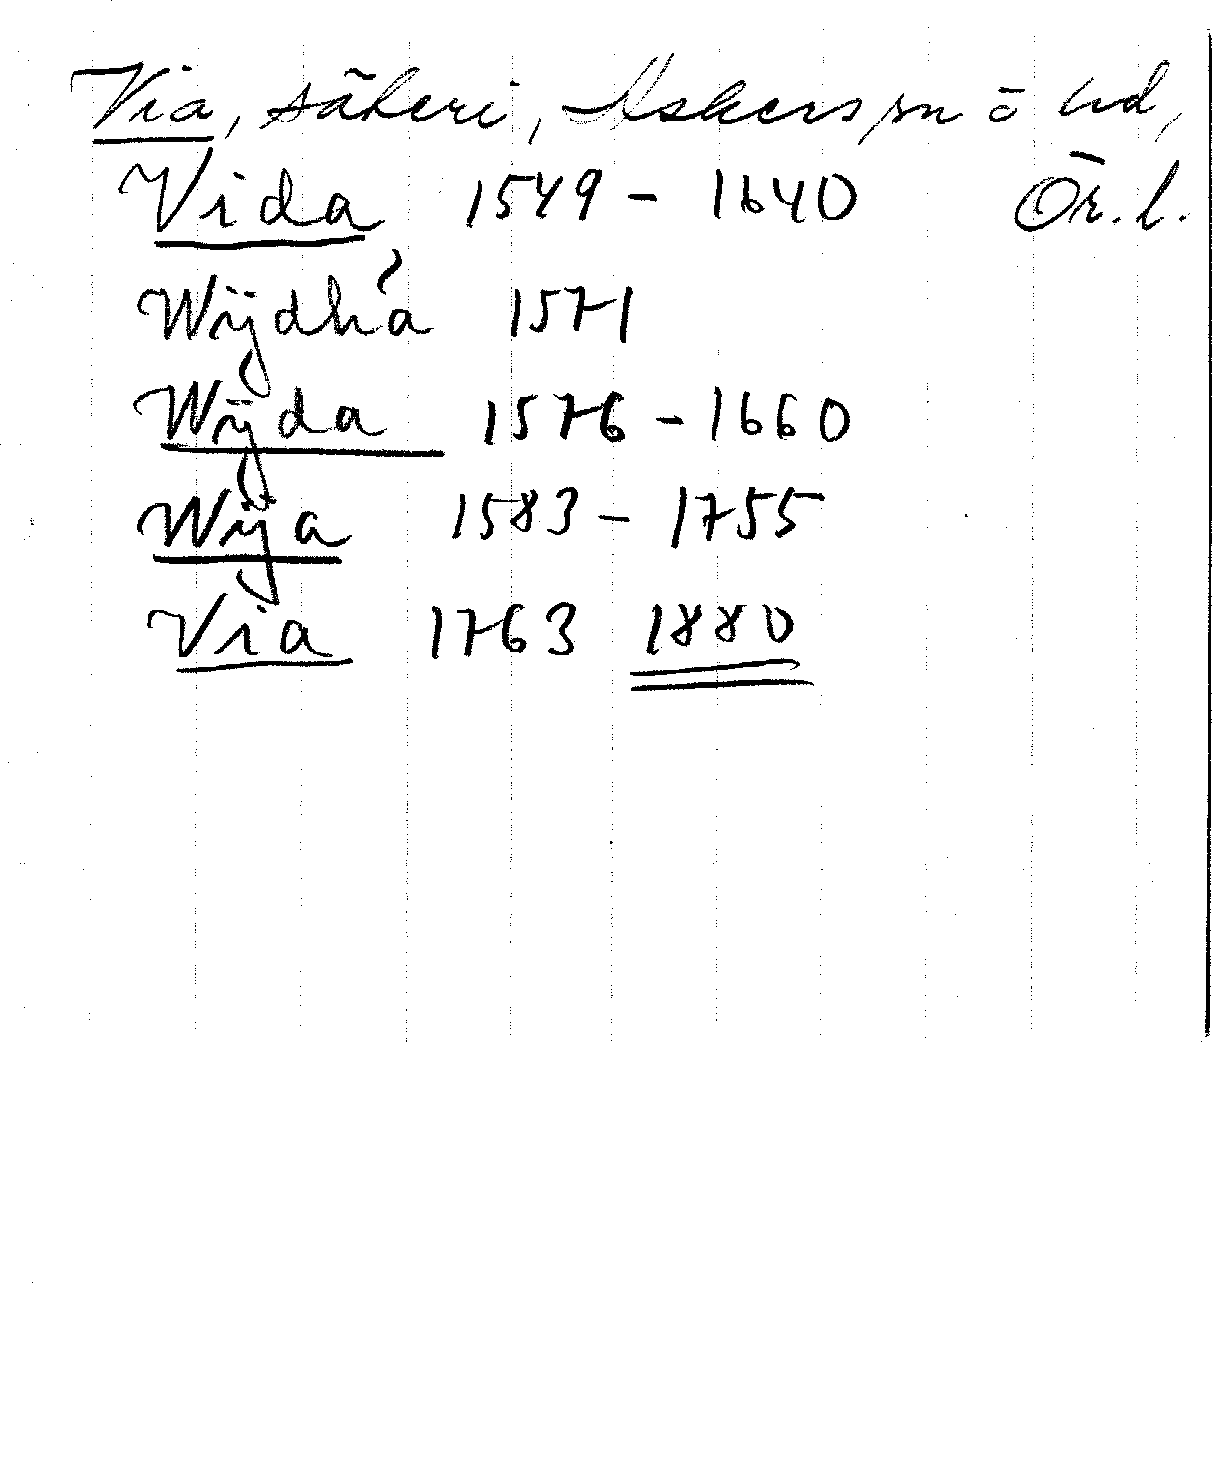 Via, säteri, Askers sn o hd,
Vida 1549 - 1640 Ör. l.
Wijdha 1571
Wijda 1576 - 1660
Wija 1583 - 1755
Via 1763 1880